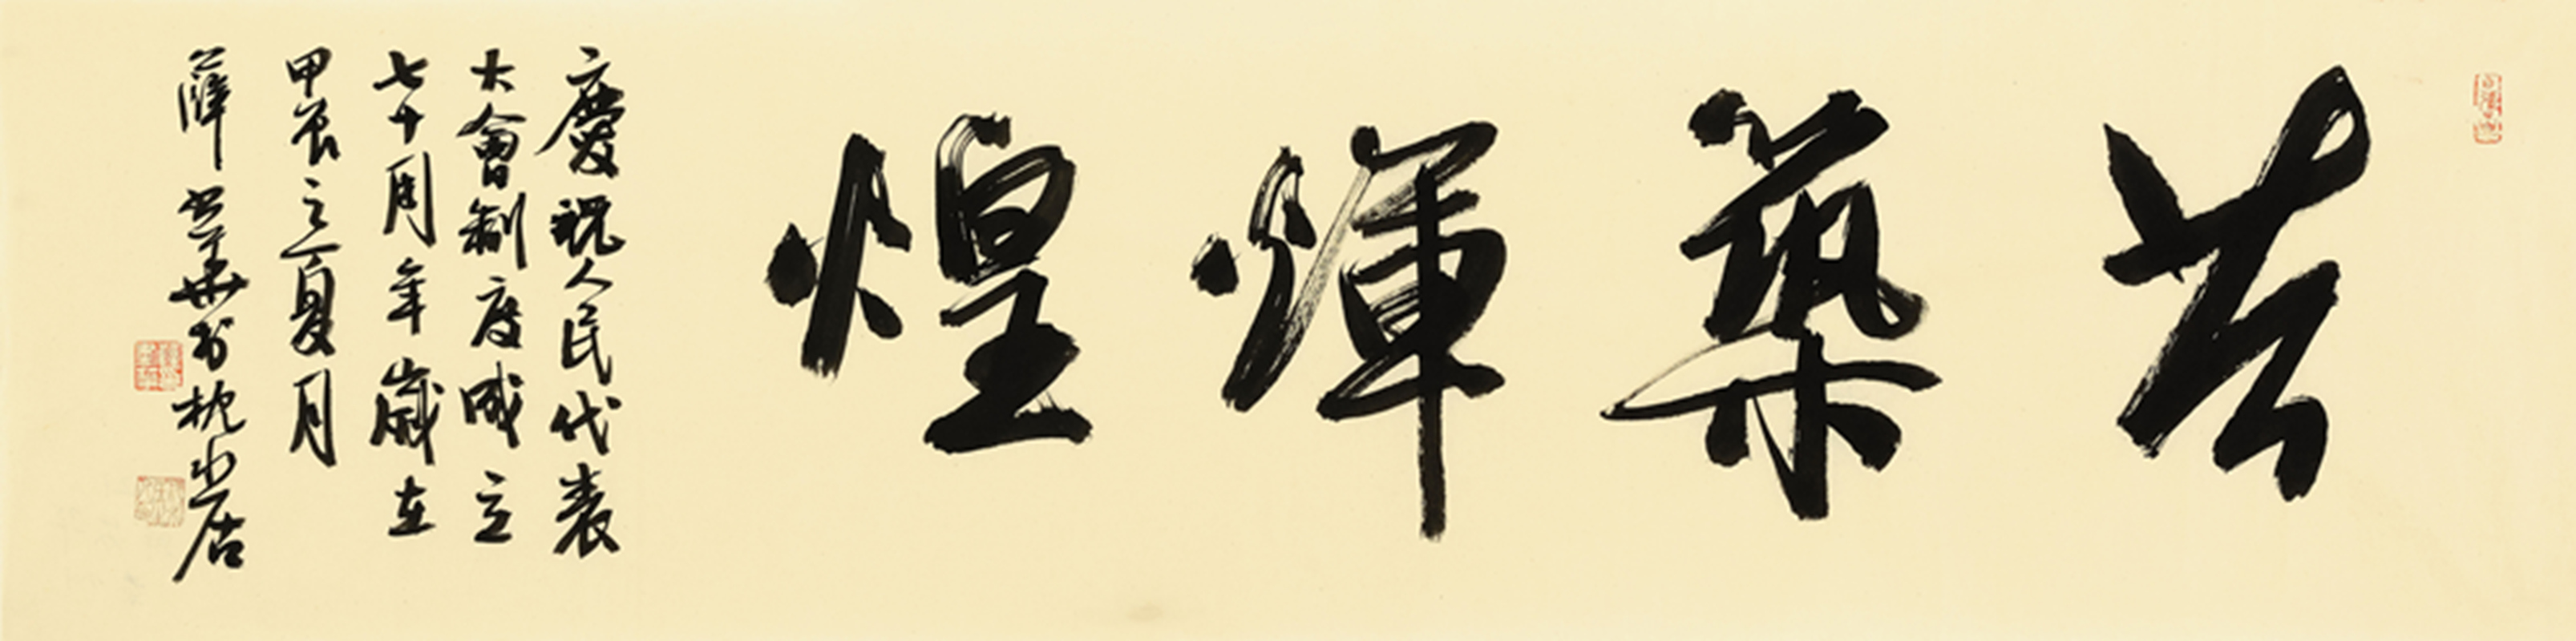 共築煇煌
慶祝人民代表
大會制度成立
七十周年歲在
甲辰之夏月
薛 華書枕山居